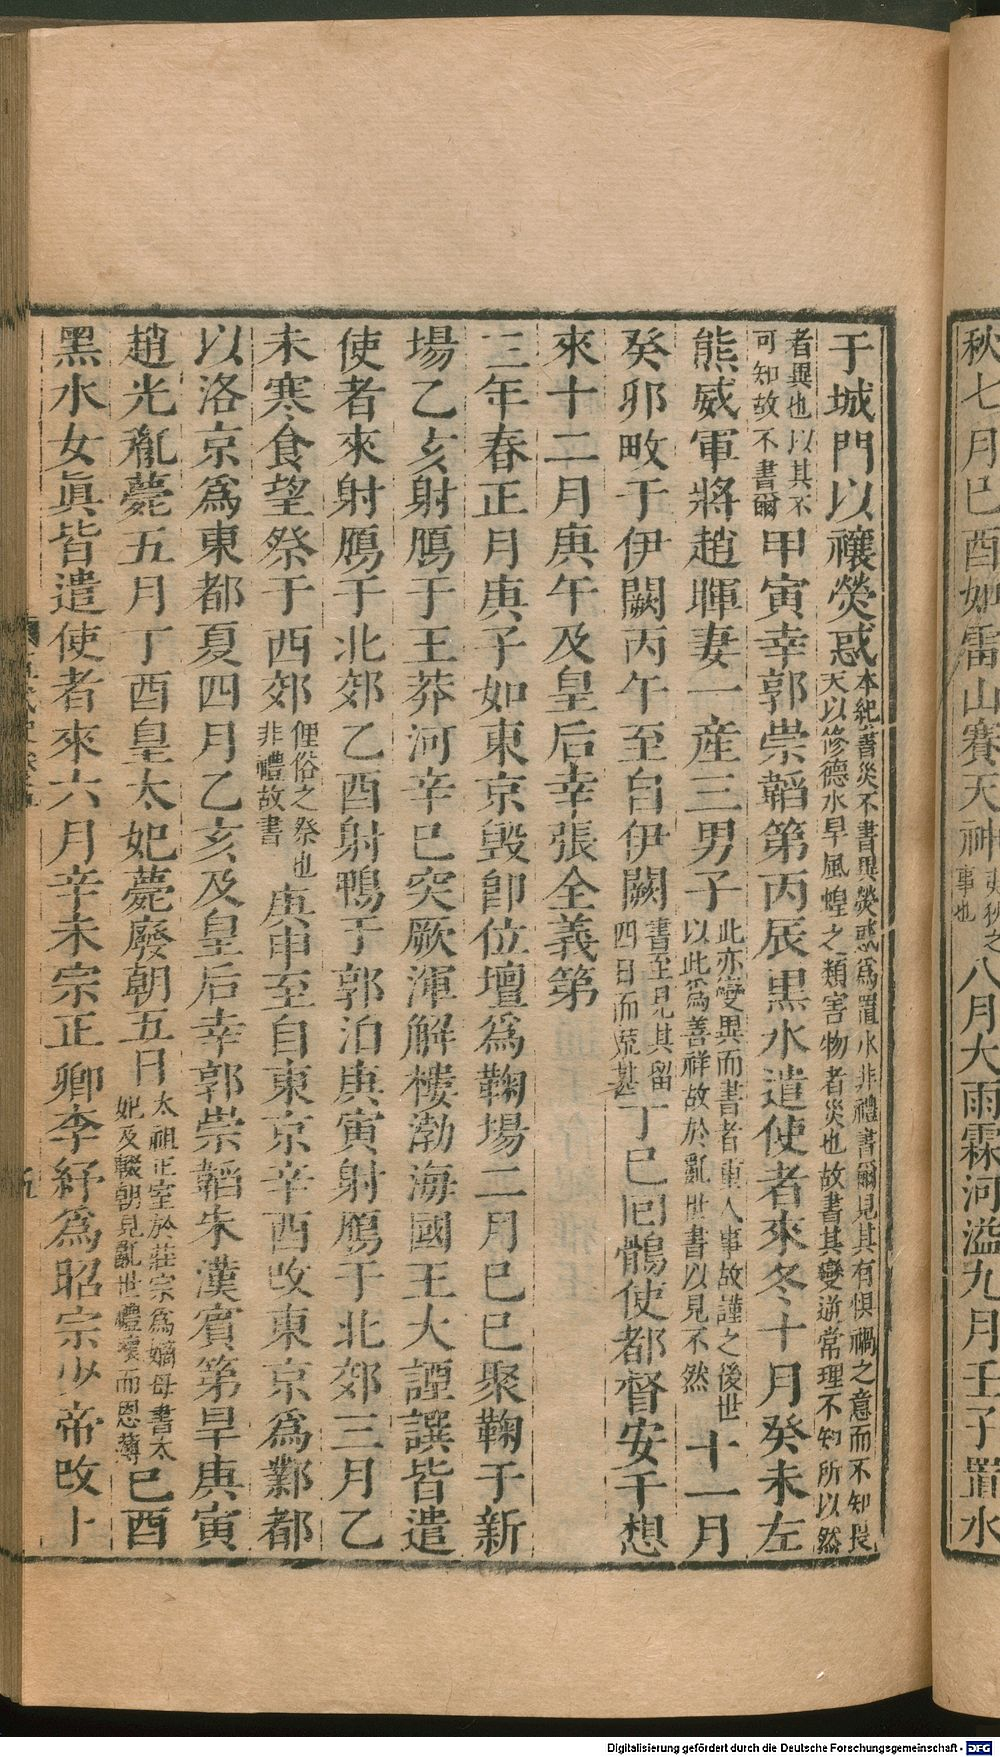 秋七月己酉如雷山賽天神夷狄之事也八月大雨霖河溢九月壬子置水
于城門以禳熒惑本紀書災不書異熒惑為置水非禮書爾見其有懼禍之意而不知畏天以修德水旱風蝗之類害物者災也故書其變逆常理不知所以然
者異也以其不可知故不書爾甲寅幸郭崇韜第丙辰黑水遣使者來冬十月癸未左
熊威軍將趙暉妻一產三男子此亦變異而書者重人事故謹之後世以此為善祥故於亂世書以見不然十一月
癸卯畋于伊闕丙午至自伊闕書至見其留四日而荒甚丁巳回鶻使都督安千想
來十二月庚午及皇后幸張全義第
三年春正月庚子如東京毀卽位壇為鞠場二月己巳聚鞠于新
場乙亥射鴈于王莽河辛巳突厥渾解樓渤海國王大諲譔皆遣
使者來射鴈于北郊乙酉射鴨于郭泊庚寅射鴈于北郊三月乙
未寒食望祭于西郊俚俗之祭也非禮故書庚申至自東京辛酉改東京為鄴都
以洛京為東都夏四月乙亥及皇后幸郭崇韜朱漢賓第旱庚寅
趙光胤薨五月丁酉皇太妃薨廢朝五日太祖正室於莊宗為嫡母書太妃及輟朝見亂世禮壞而恩薄己酉
黑水女眞皆遣使者來六月辛未宗正卿李紓為昭宗少帝改卜
五
Digitalisierung gefördert durch die Deutsche Forschungsgemeinschaft - DFG